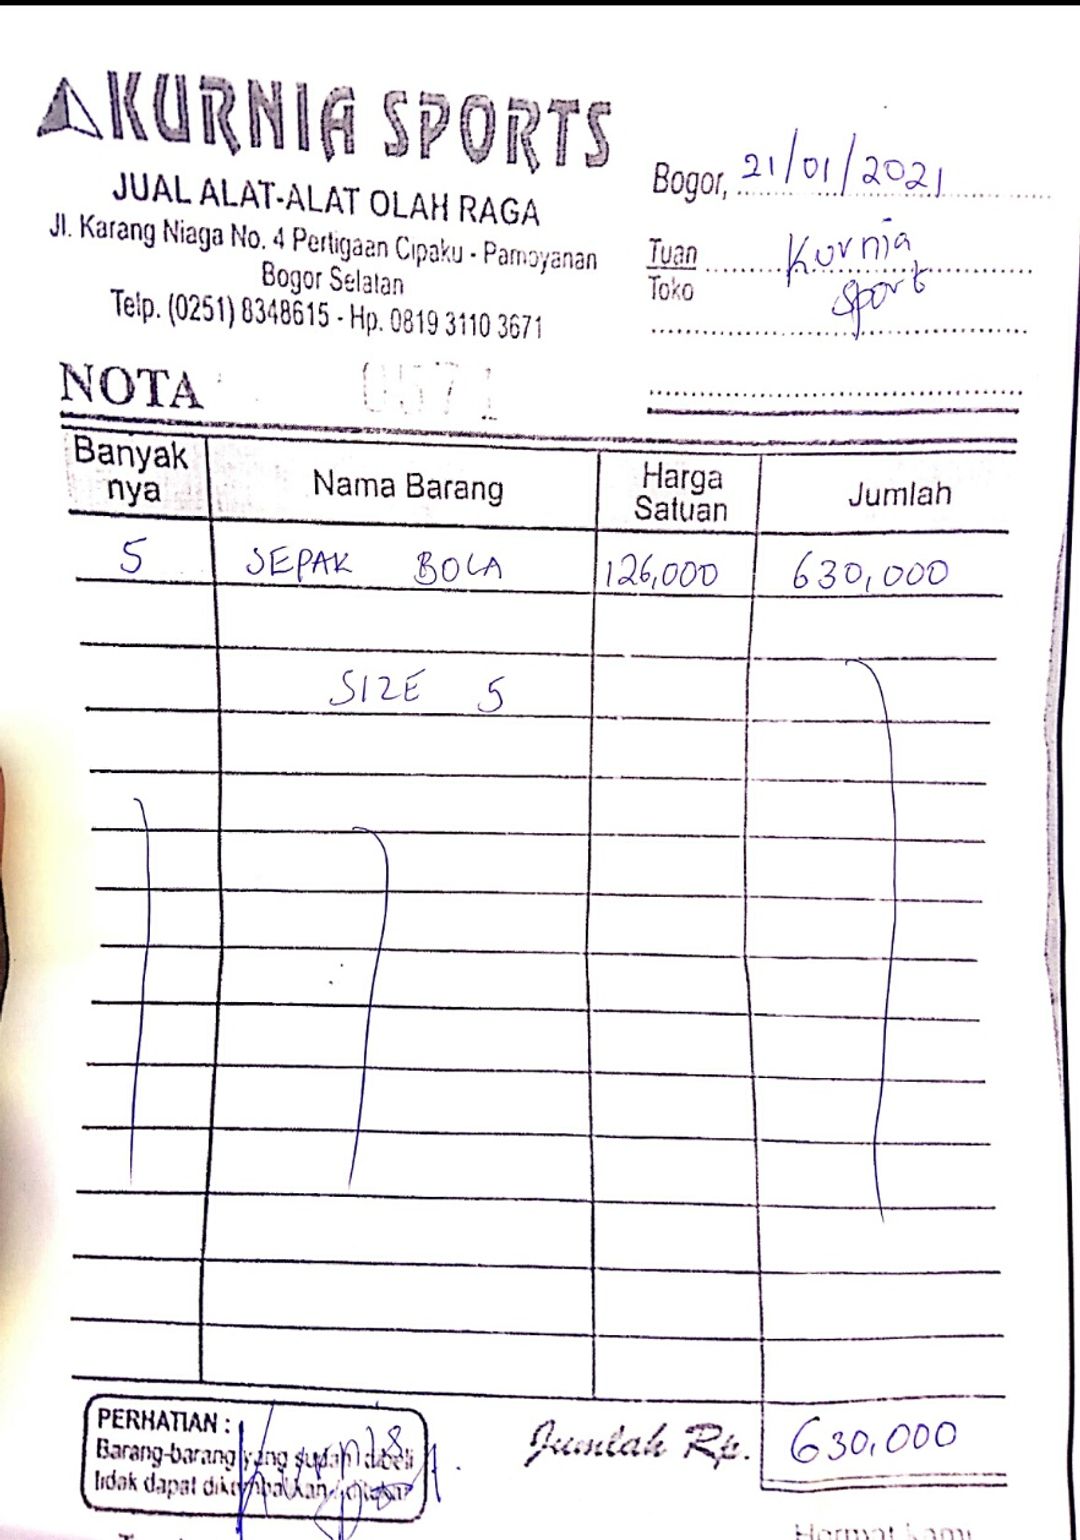 KURNIA SPORTS
JUAL ALAT-ALAT OLAH RAGA
Jl. Karang Niaga No. 4 Pertigaan Cipaku - Pamoyanan
Bogor Selatan
Telp. (0251) 8348615 - Hp. 0819 3110 3671
Bogor, 21/01/2021
Tuan Kurnia
Toko sport
NOTA 0571
Banyak nya Nama Barang Harga Satuan Jumlah
5 SEPAK BOLA 126,000 630,000
SIZE 5
Jumlah Rp. 630,000
PERHATIAN :
Barang-barang yang sudah dibeli
tidak dapat dikembalikan
Hormat kami